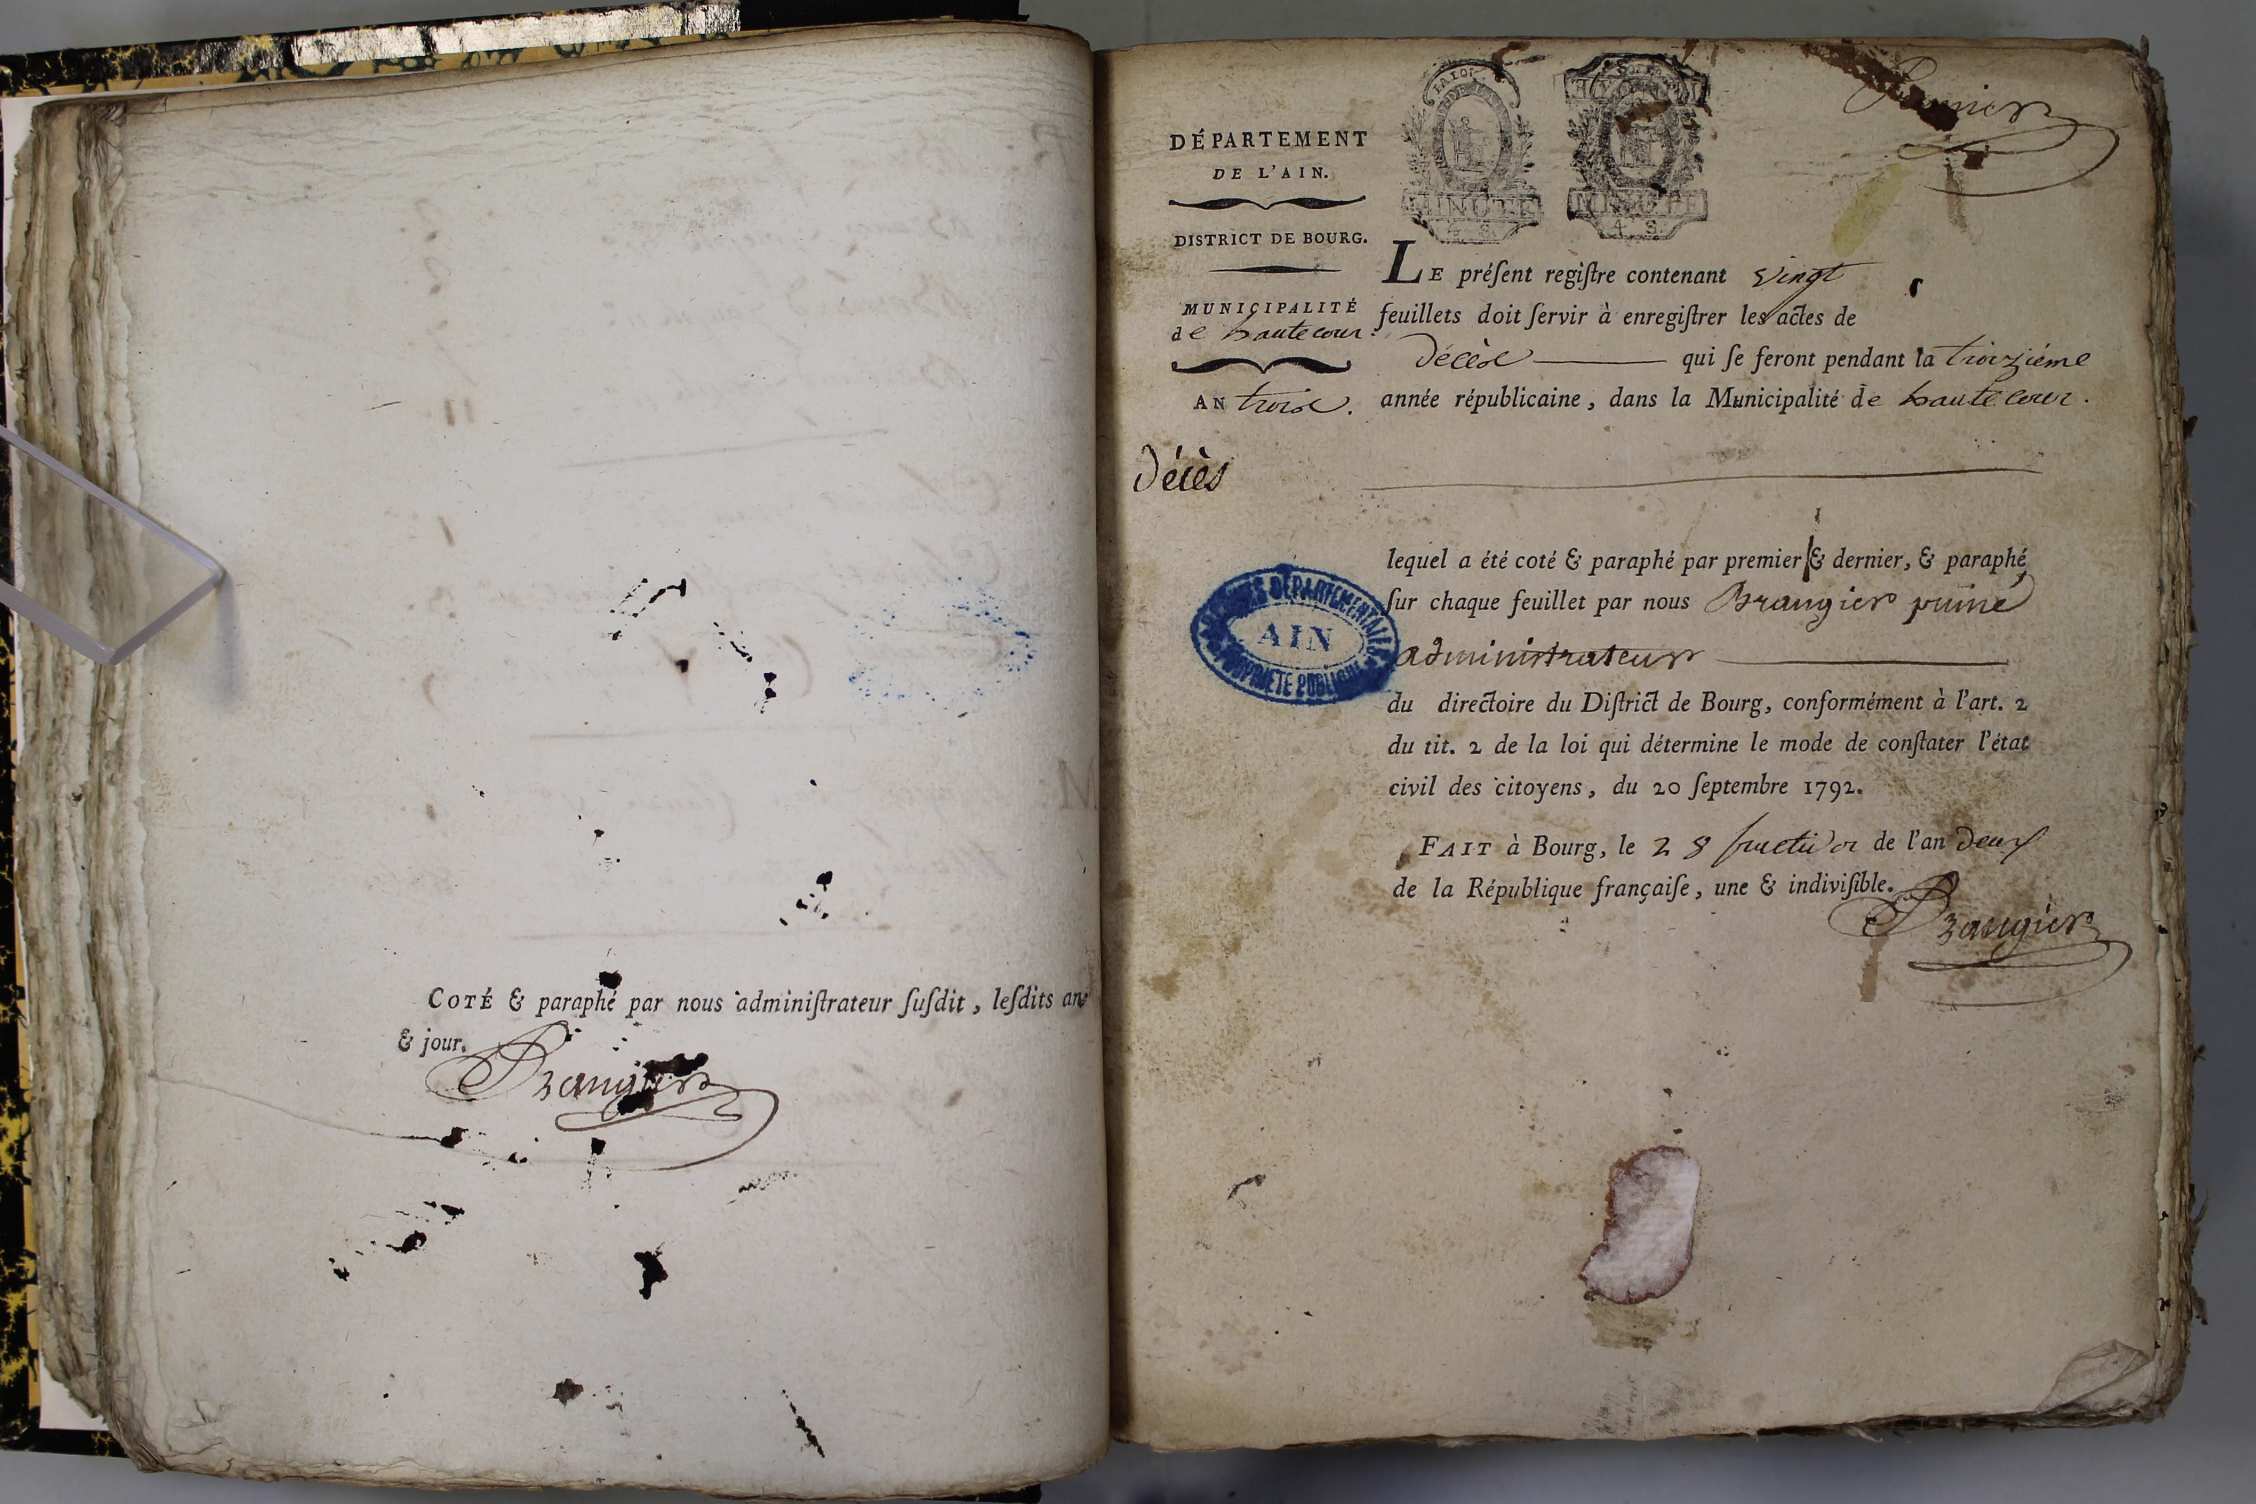 COTÉ & paraphé par nous adminiſtrateur ſuſdit, leſdits an
& jour.
Brangier
DÉPARTEMENT
DE L'AIN.
DISTRICT DE BOURG.
MUNICIPALITÉ
de hautecour
AN troix.
décès
LA LOI
MINUTE
4. S.
MINUTE
4. S.
LE préſent regiſtre contenant vingt
feuillets doit ſervir à enregiſtrer les actes de
décès qui ſe feront pendant la troizième
année républicaine, dans la Municipalité de hautecour.
lequel a été coté & paraphé par premier & dernier, & paraphé
ſur chaque feuillet par nous Brangier puiné
administrateur
du directoire du Diſtrict de Bourg, conformément à l'art. 2
du tit. 2 de la loi qui détermine le mode de conſtater l'état
civil des citoyens, du 20 ſeptembre 1792.
FAIT à Bourg, le 28 fructidor de l'an deux
de la République françaiſe, une & indiviſible.
Brangier
ARCHIVES DÉPARTEMENTALES
AIN
PROPRIÉTÉ PUBLIQUE